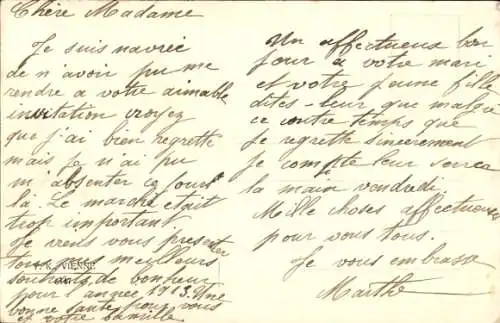 Chère Madame
Je suis navrée
de n'avoir pu me
rendre a votre aimable
invitation croyez
que j'ai bien regretté
mais je n'ai pu
m'absenter ce jour
là. Le marché était
trop important
Je viens vous presenter
tous mes meilleurs
souhaits de bonheur
pour l'année 1913. Une
bonne santé pour vous
et votre famille
Un affectueux bon
jour a votre mari
et votre jeune fille
dites-leur que malgré
ce contre temps que
je regrette sincerement
je compte leur serrer
la main vendredi.
Mille choses affectueuses
pour vous tous.
Je vous embrasse
Marthe
VIENNE